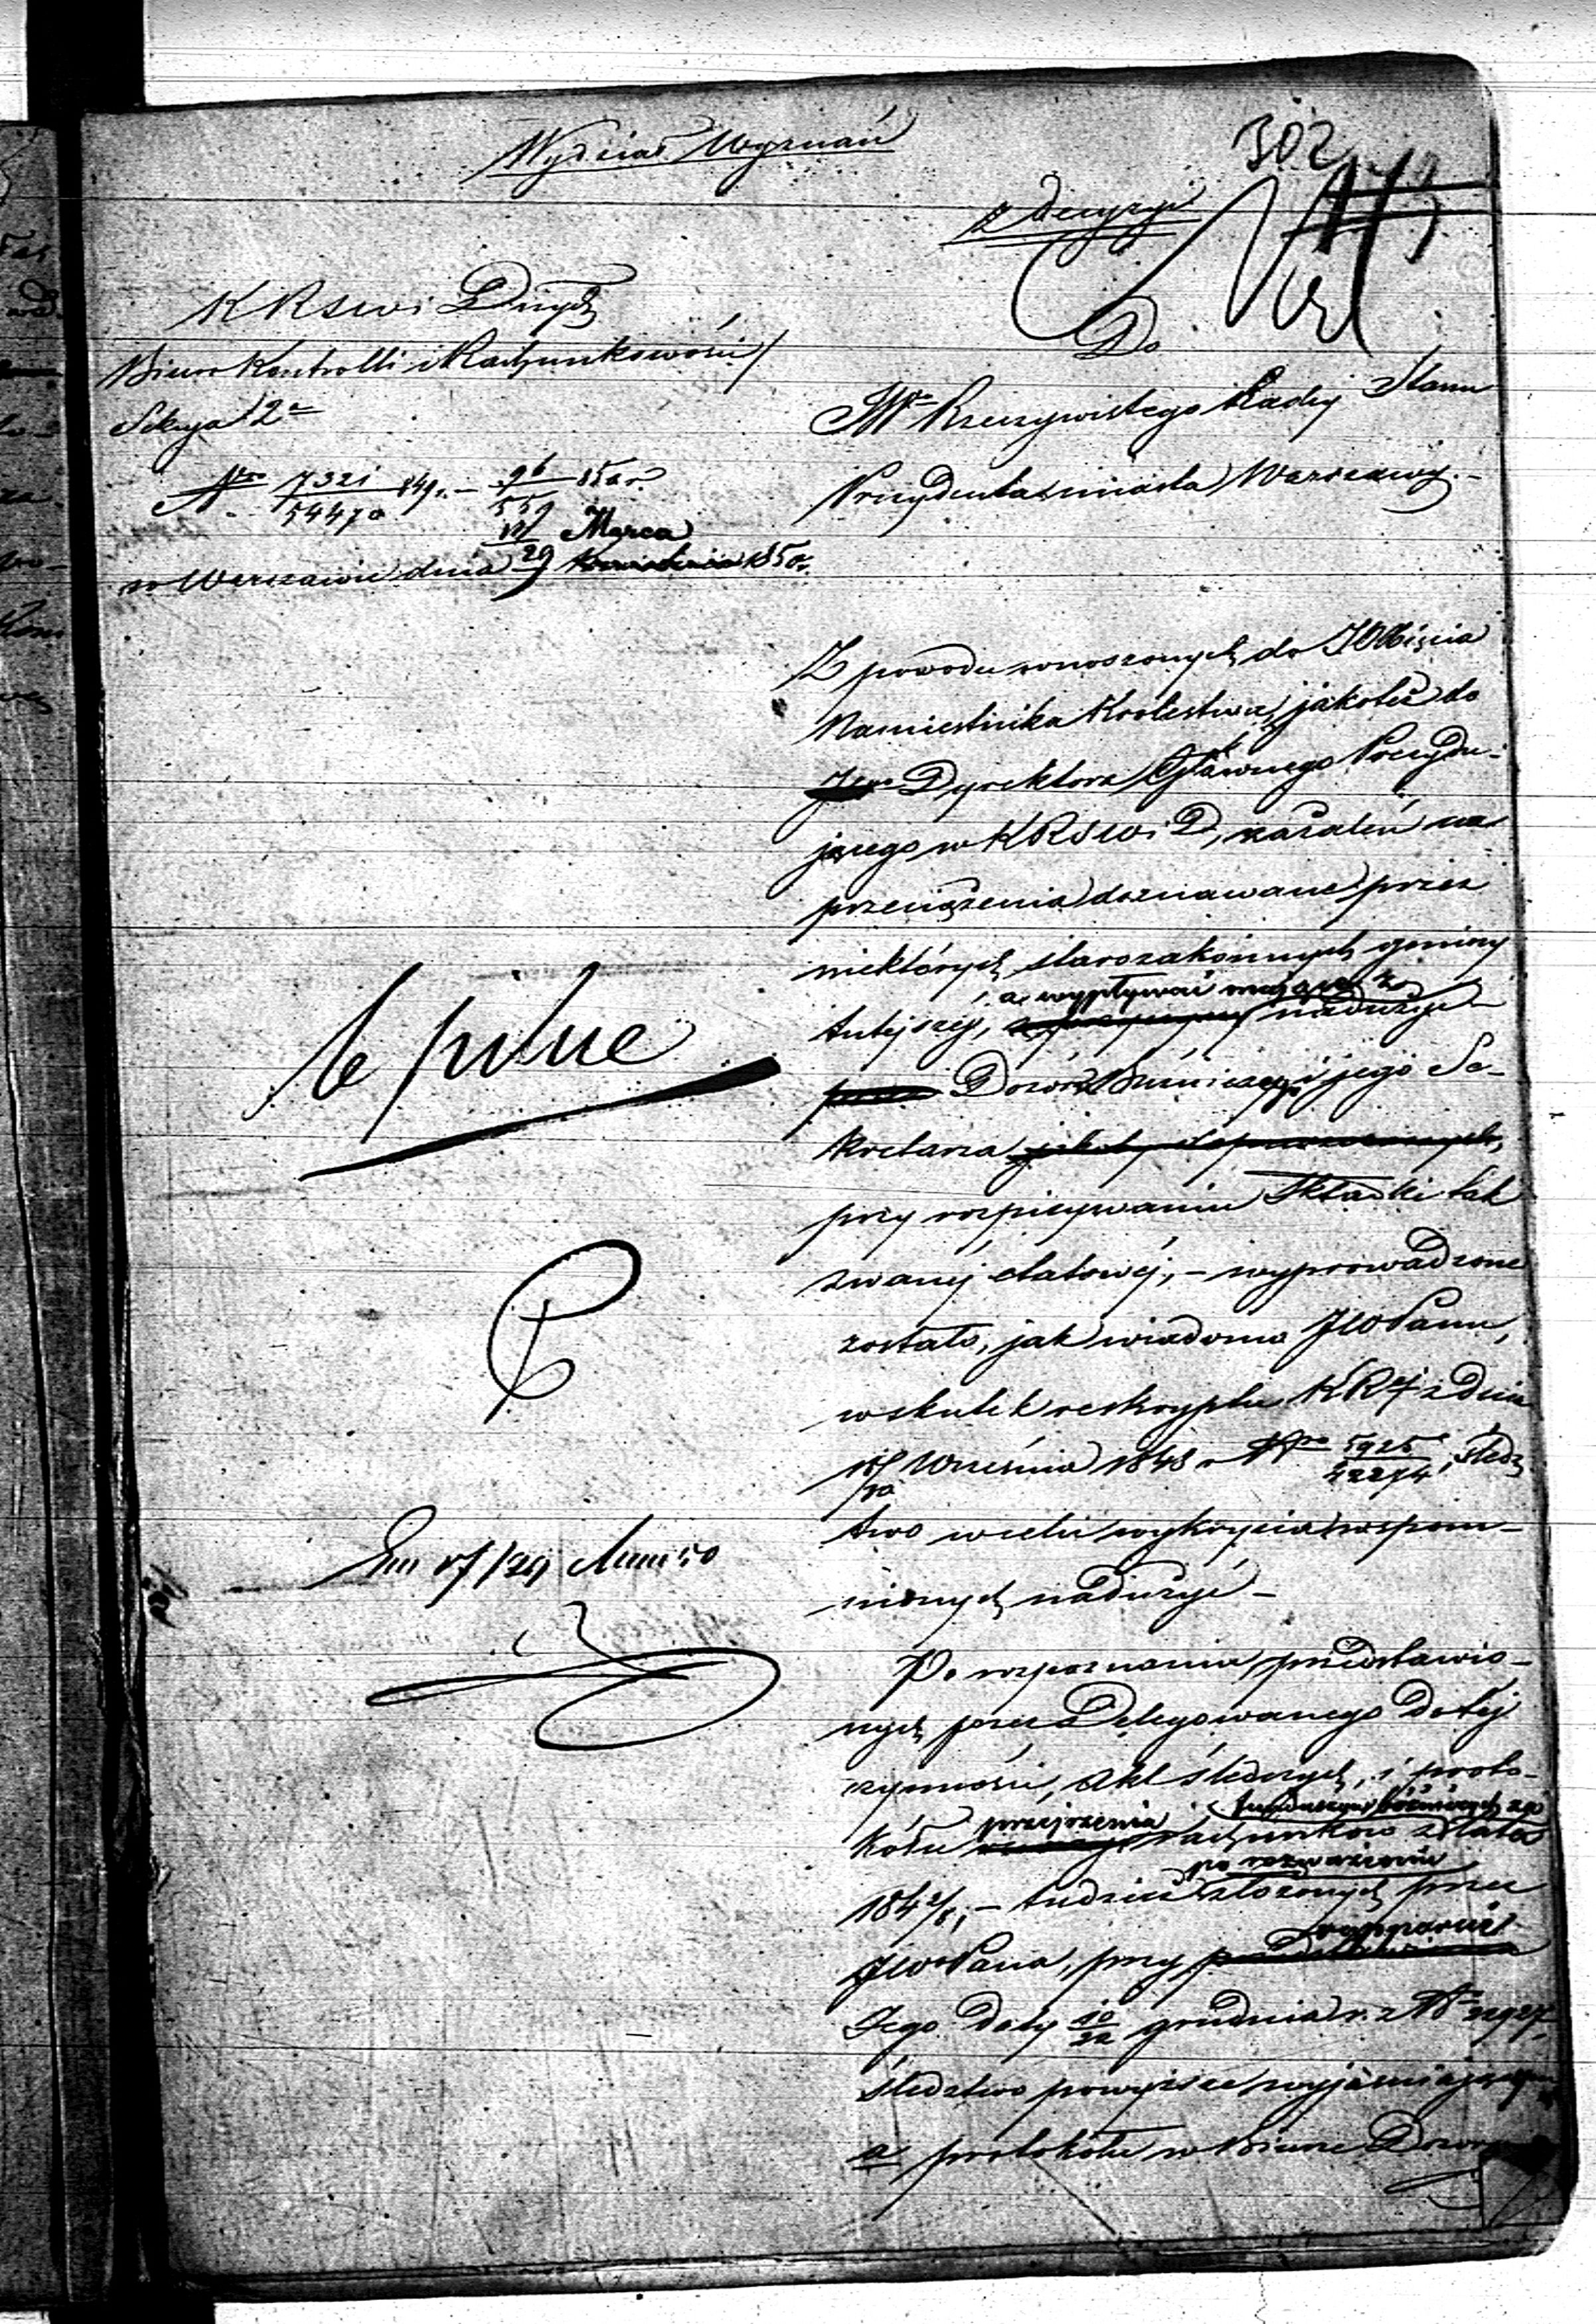 302
Wydział Wyznań
z decyzyi
KRSW i D
Biuro Kontrolli i Rachunkowości
Sekcya 2a
Nro 7321/54470 849 r. – 96/559 850 r.
w Warszawie dnia 17/29 Marca 1850 r.
Do
JW Rzeczywistego Radcy Stanu
Prezydenta miasta Warszawy. –
Z powodu wnoszonych do JO Xięcia
Namiestnika Królestwa, jakoteż do
Dyrektora Głównego Prezydu-
jącego w KRSW i D, zażaleń na
przeciążenia doznawane przez
niektórych starozakonnych gminy
tutejszej, a wypływać mające z nadużyć
Dozoru Bóżniczego i jego Se-
kretarza
przy rozpisywaniu składki tak
zwanej etatowej, – wyprowadzone
zostało, jak wiadomo JWPanu,
wskutek reskryptu KRej z dnia
18/30 Września 1848 r. Nro 5925/42274, śledz
two w celu wykrycia wspom-
nionych nadużyć –
Po rozpoznaniu przedstawio-
nych przez Delegowanego do tej
czynności, akt śledczych, i proto-
kółu przejrzenia rachunków funduszów bóżniczych za lata
184 – tudzież po rozważeniu złożonych przez
JWPana, przy rapporcie
Jego daty 10/22 grudnia r. z. N 22927,
śledztwo powyższe wyjaśniających
a protokółu w Biurze Dozoru
pilne
17/29 Marca 50